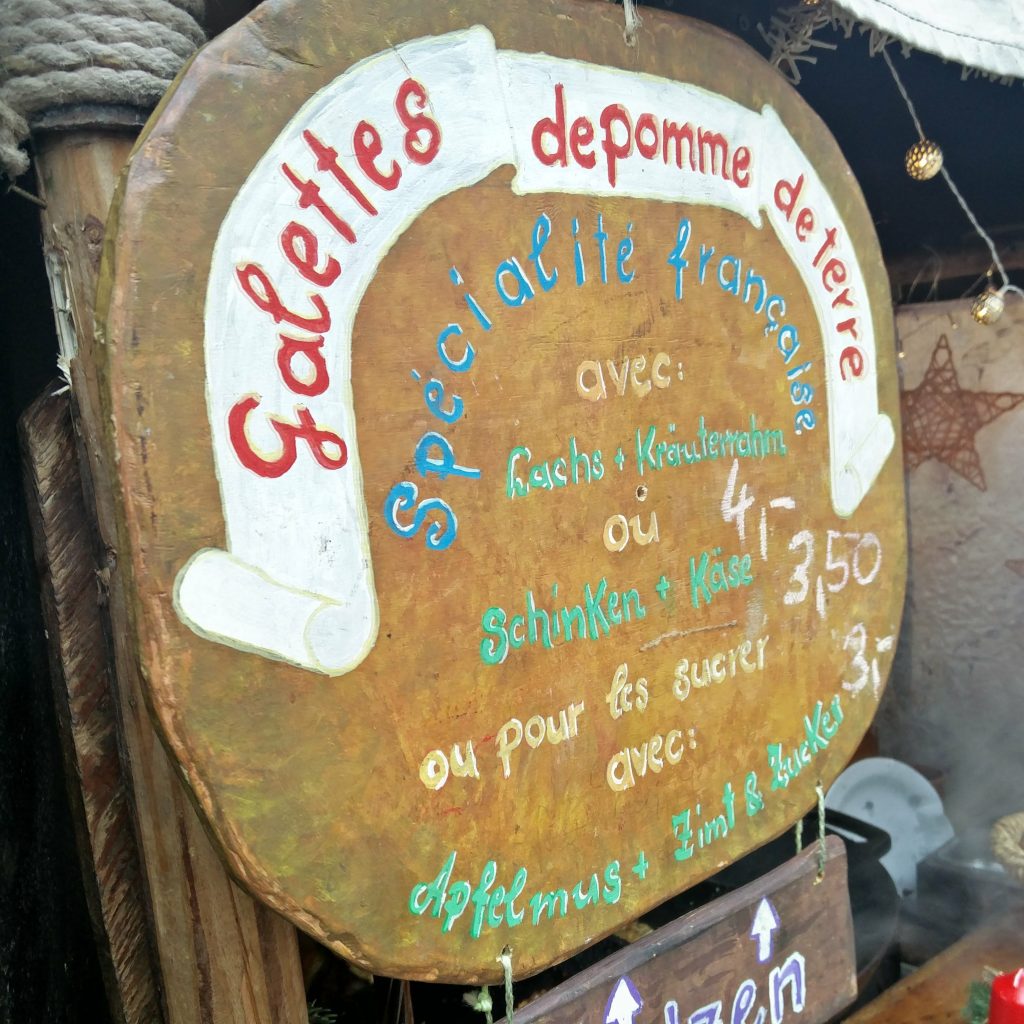 Galettes de pomme de terre
Spécialité française
avec:
Lachs + Kräuterrahm
4,-
ou
Schinken + Käse
3,50
ou pour les sucrér
3,-
avec:
Apfelmus + Zimt & Zucker